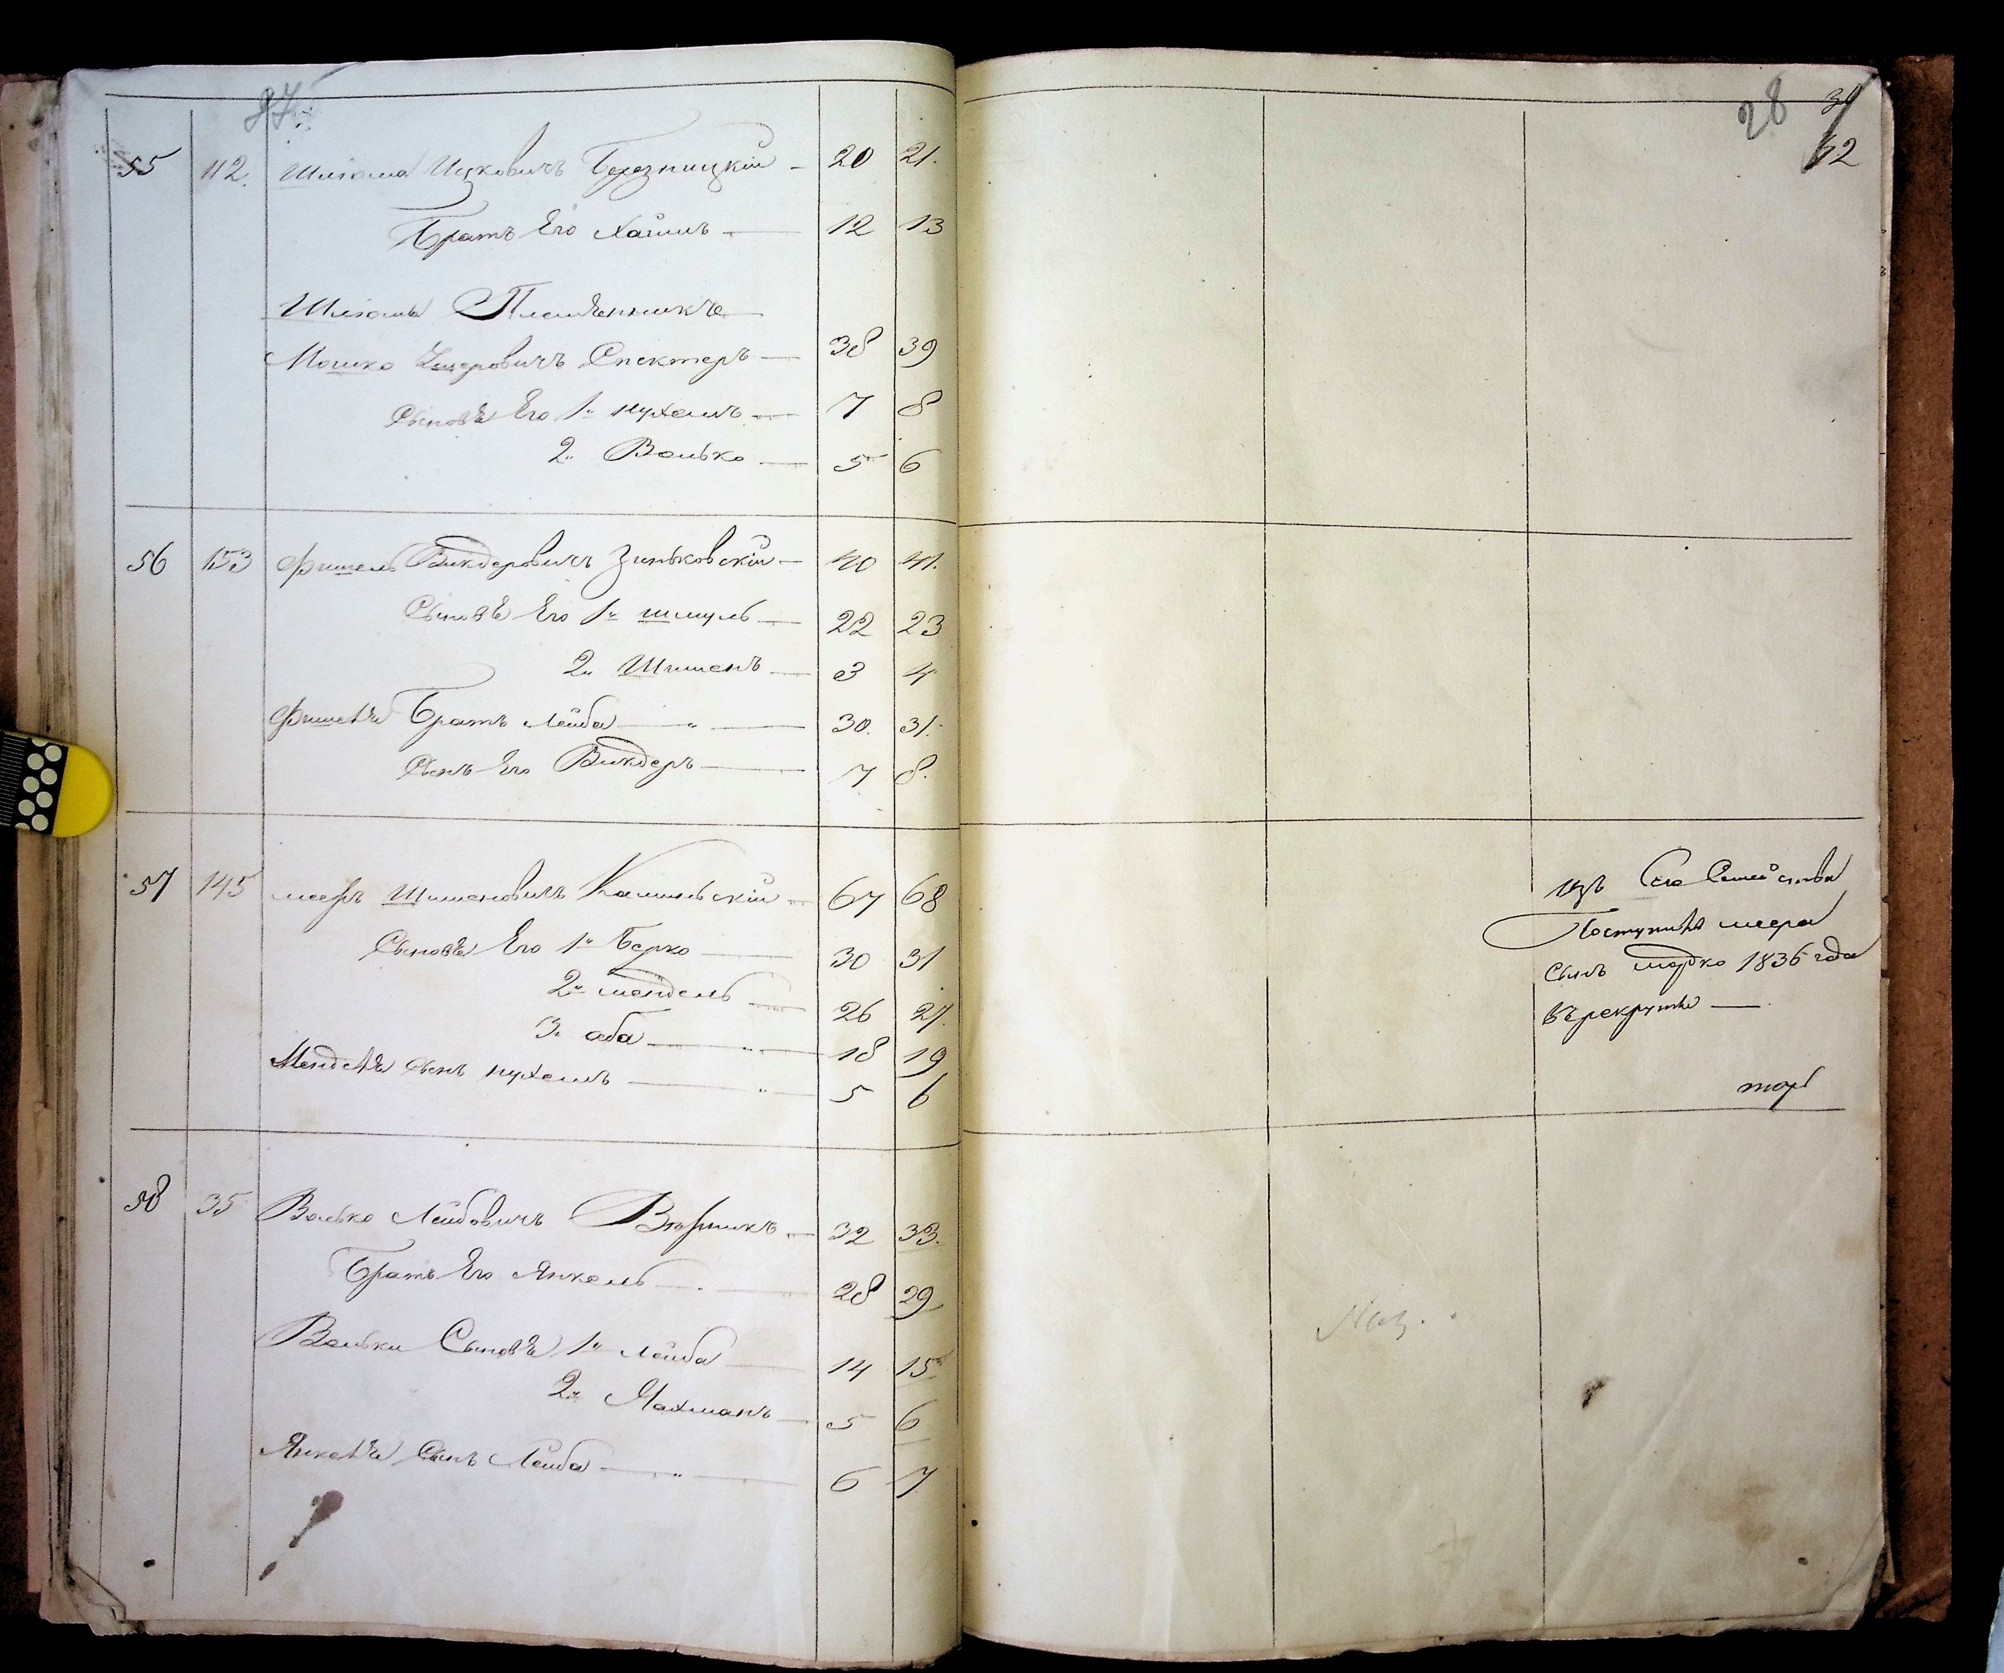 27
55 112. Шлiома Ицковичъ Березницкiй 20 21.
Братъ Его Хаимъ 12 13
Шлiомы Племѣнникъ
Мошко Спекторъ 38 39
Сыновѣ Его 1й Нухемъ 7 8
2й Волько 5 6
56 153 Фишель Викдоровичъ Зиньковскiй 40 41.
Сыновѣ Его 1й Шмуль 22 23
2й Шимонъ 3 4
Фишеля Братъ Лейба 30. 31.
Сынъ Его Викдоръ 7 8.
57 145 мееръ Шимоновичъ 67 68
Сыновѣ Его 1й Берко 30 31
2й мендель 26 27.
3й аба 18 19
Менделя сынъ Нухемъ 5 6
58 35 Волько Лейбовичъ 32 33.
Братъ Его Янкель 28 29
Вольки Сыновѣ 1й Лейба 14 15
2й Нахманъ 5 6
Янкеля Сынъ Лейба 6 7
28
62
изъ Сего Семейства
Поступилъ меера
сынъ мордко 1836 года
въ рекруты